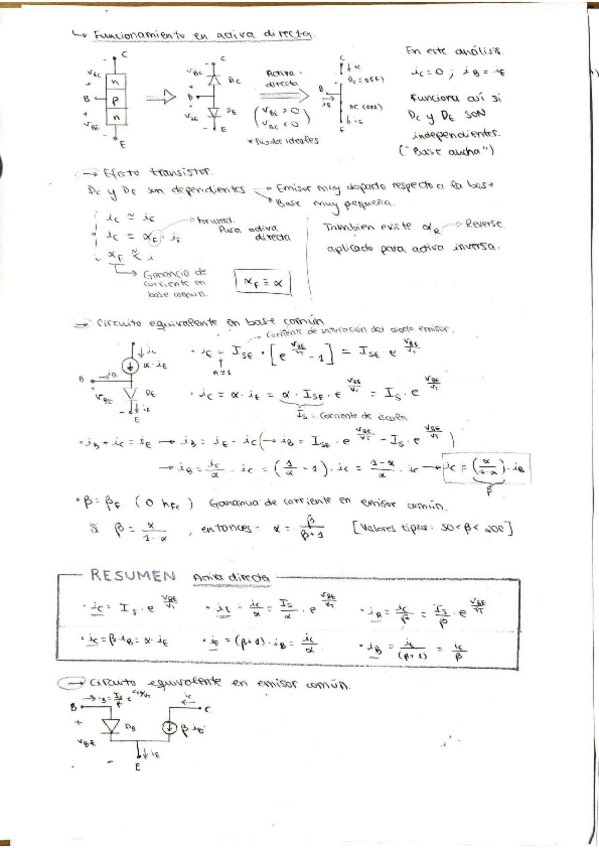 ↳ Funcionamiento en activa directa.
C
n
p
n
B
E
V_BC
V_BE
C
V_BC
D_C
B
V_BE
D_E
E
Activa directa
(V_BE > 0
V_BC < 0)
* Diodos ideales
C
i_C
D_C (OFF)
B
i_B
D_E (ON)
E
i_E
En este análisis.
i_C = 0 ; i_B = i_E
Funciona así si
D_C y D_E SON
independientes.
("Base ancha")
→ Efecto transistor.
D_C y D_E son dependientes
Emisor muy dopado respecto a la base
Base muy pequeña.
i_C ≃ i_E
i_C = α_F · i_E
Para activa directa
α_F ≈ 1
Ganancia de
corriente en
base común.
α_F ≡ α
También existe α_R → Reverse
aplicado para activa inversa.
→ Circuito equivalente en base común
Corriente de saturación del diodo emisor.
i_C
α·i_E
B
i_B
V_BE
D_E
i_E
E
· i_E = I_SE · [e^(V_BE/V_T) - 1] = I_SE · e^(V_BE/V_T)
n=1
· i_C = α · i_E = α · I_SE · e^(V_BE/V_T) = I_S · e^(V_BE/V_T)
I_S = Corriente de escala
· i_B + i_C = i_E → i_B = i_E - i_C (→ i_B = I_SE · e^(V_BE/V_T) - I_S · e^(V_BE/V_T))
→ i_B = i_C/α - i_C = (1/α - 1) · i_C = (1-α)/α · i_C → i_C = (α/(1-α)) · i_B
β
· β = β_F (O h_FE) Ganancia de corriente en emisor común.
Si β = α/(1-α) , entonces: α = β/(β+1) [Valores típicos: 50 < β < 200]
RESUMEN Activa directa
· i_C = I_S · e^(V_BE/V_T) · i_E = i_C/α = I_S/α · e^(V_BE/V_T) · i_B = i_C/β = I_S/β · e^(V_BE/V_T)
· i_C = β·i_B = α·i_E · i_E = (β+1) · i_B = i_C/α · i_B = i_E/(β+1) = i_C/β
→ Circuito equivalente en emisor común.
→ i_B = I_S/β e^(V_BE/V_T)
i_C
B
C
V_BE
D_B
β i_B
i_E
E